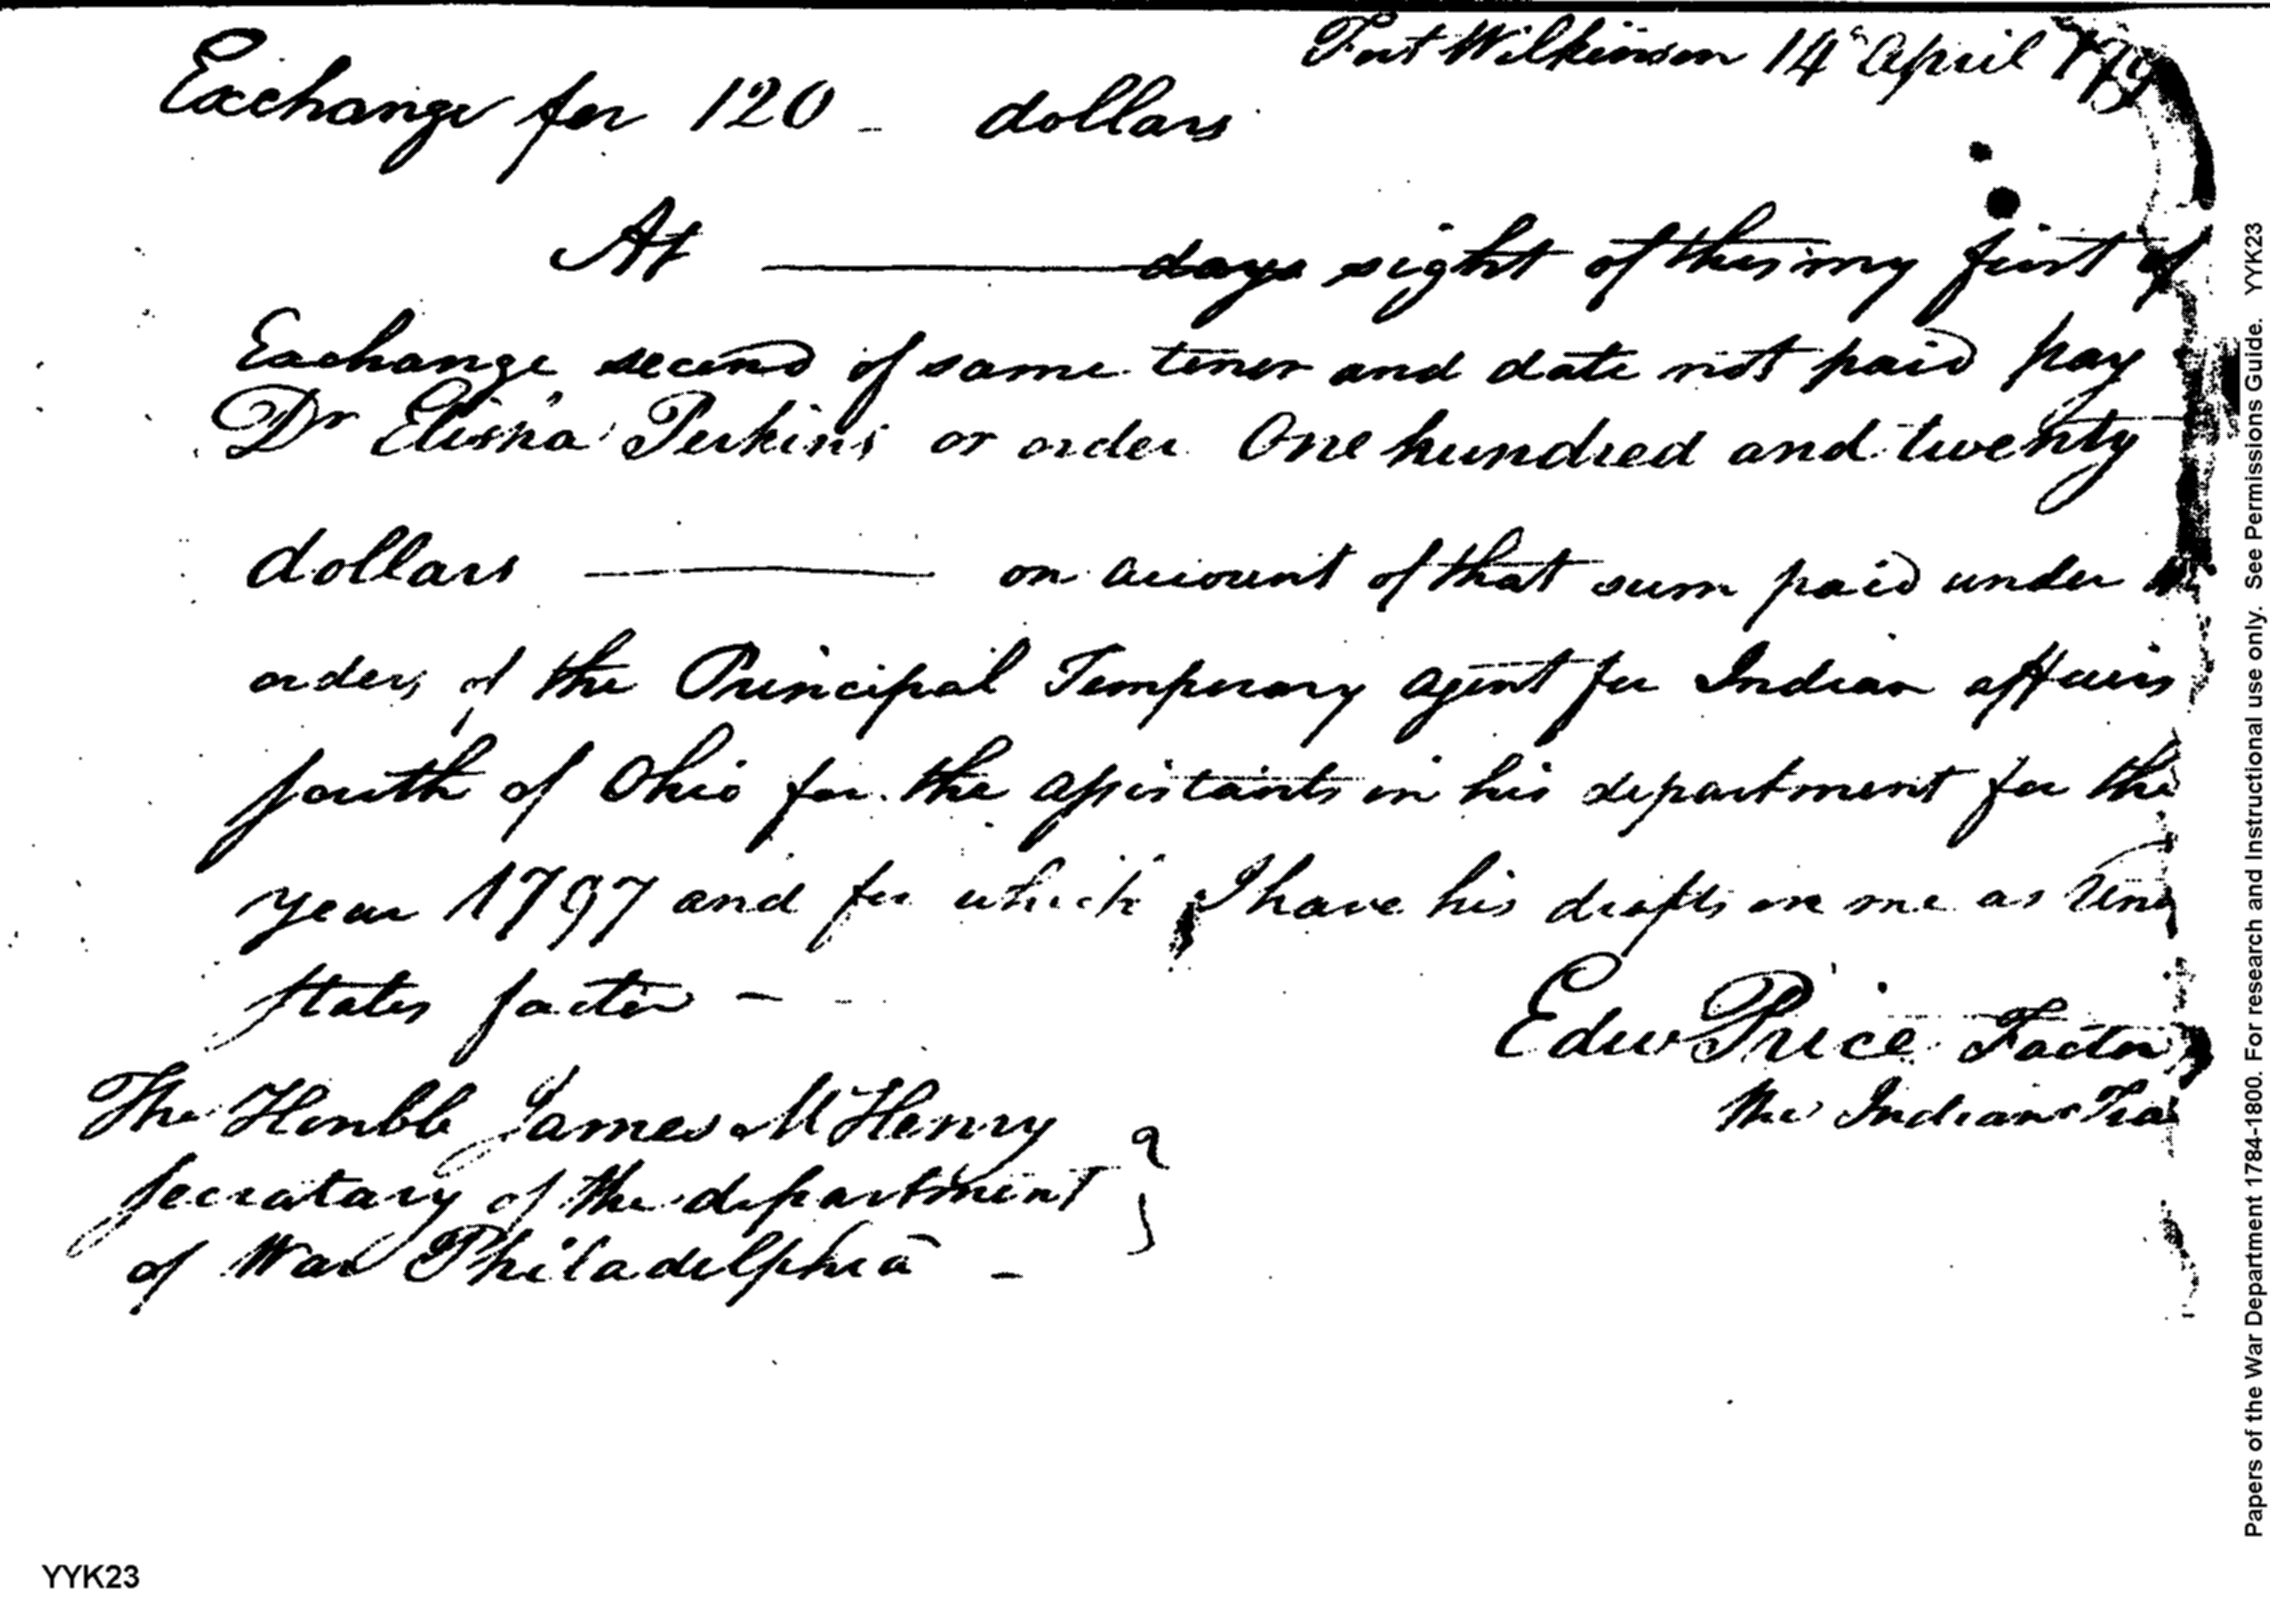 Fort Wilkinson 14 April
Exchange for 120 - dollars
At ———— days sight of this my first of
Exchange second of same tenor and date not paid pay
Dr Elisha Perkins or order One hundred and twenty
dollars ———— on account of that sum paid under
orders of the Principal Temporary agent for Indian affairs
south of Ohio for the assistants in his department for the
year 1797 and for which I have his drafts on me as
states factor - -
Edwd Price Factor
the Indian
The Honble James McHenry
Secretary of the department
of War Philadelphia -
Papers of the War Department 1784-1800. For research and Instructional use only. See Permissions Guide. YYK23
YYK23